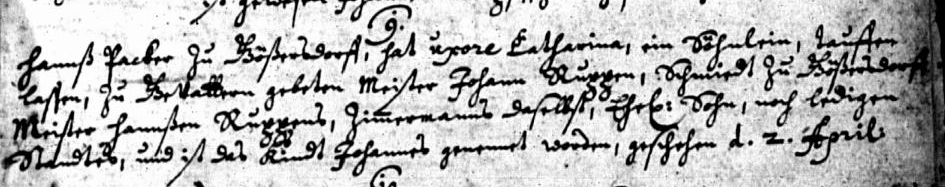 9.
Hannß Packer zu Bößersdorff, hat uxore Catharina, ein Söhnlein, tauffen
lassen, zu Gevattern gebeten Meister Johann Ruppen, Schmiedt zu Bößersdorff
Meister Hannßen Ruppens, Zimmermanns daselbst, Ehel: Sohn, noch ledigen
Standes, und ist das Kindt Johannes genennet worden, geschehen d. 2. April